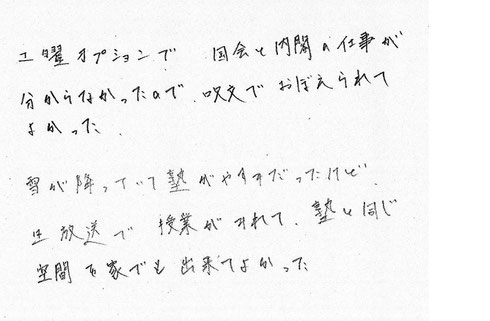 土曜オプションで 国会と内閣の仕事が
分からなかったので、呪文でおぼえられて
よかった.
雪が降っていて塾がやすみだったけど、
生放送で授業がされて、塾と同じ
空間を家でも出来てよかった